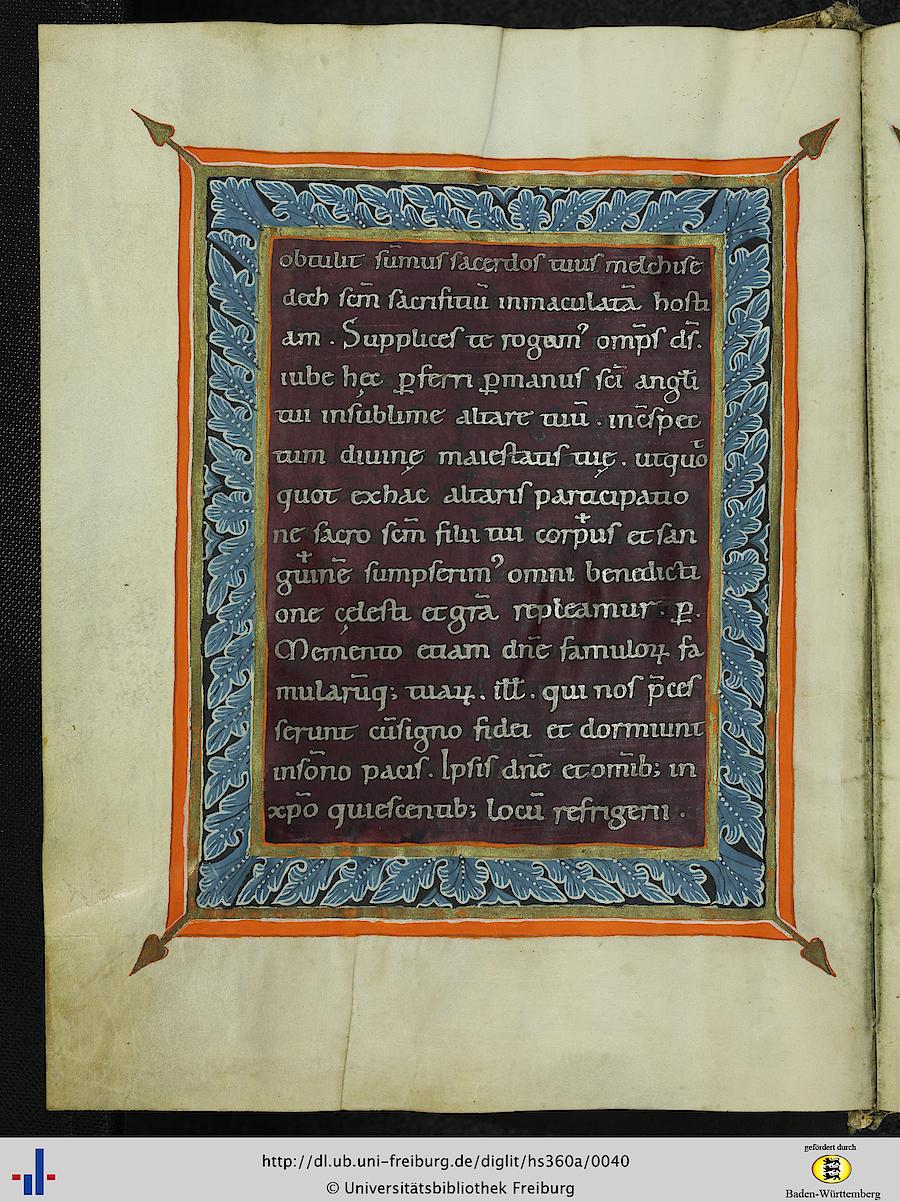 obtulit sūmus sacerdos tuus melchise
dech scm̄ sacrifitiū inmaculatā hosti
am . Supplices te rogam᾽ omp̄s ds̄.
iube hęc ꝑferri ꝑmanus sc̄i angl̄i
tui insublime altare tuū . incspec
tum diuinę maiestatis tuę . utquo
quot exhac altaris participatio
ne sacro scm̄ filii tui cor✝pus et san
gui✝nē sumpserim᾽ omni benedicti
one cęlesti et gr̄a repleamur . ꝑ.
Memento etiam dn̄e famuloꝝ fa
mularūq; tuaꝝ . ill̄ . qui nos p̄ces
serunt cū signo fidei et dormiunt
in som̄no pacis . Ipsis dn̄e et om̄ib; in
xp̄o quiescentib; locū refrigerii .
http://dl.ub.uni-freiburg.de/diglit/hs360a/0040
© Universitätsbibliothek Freiburg
gefördert durch
Baden-Württemberg